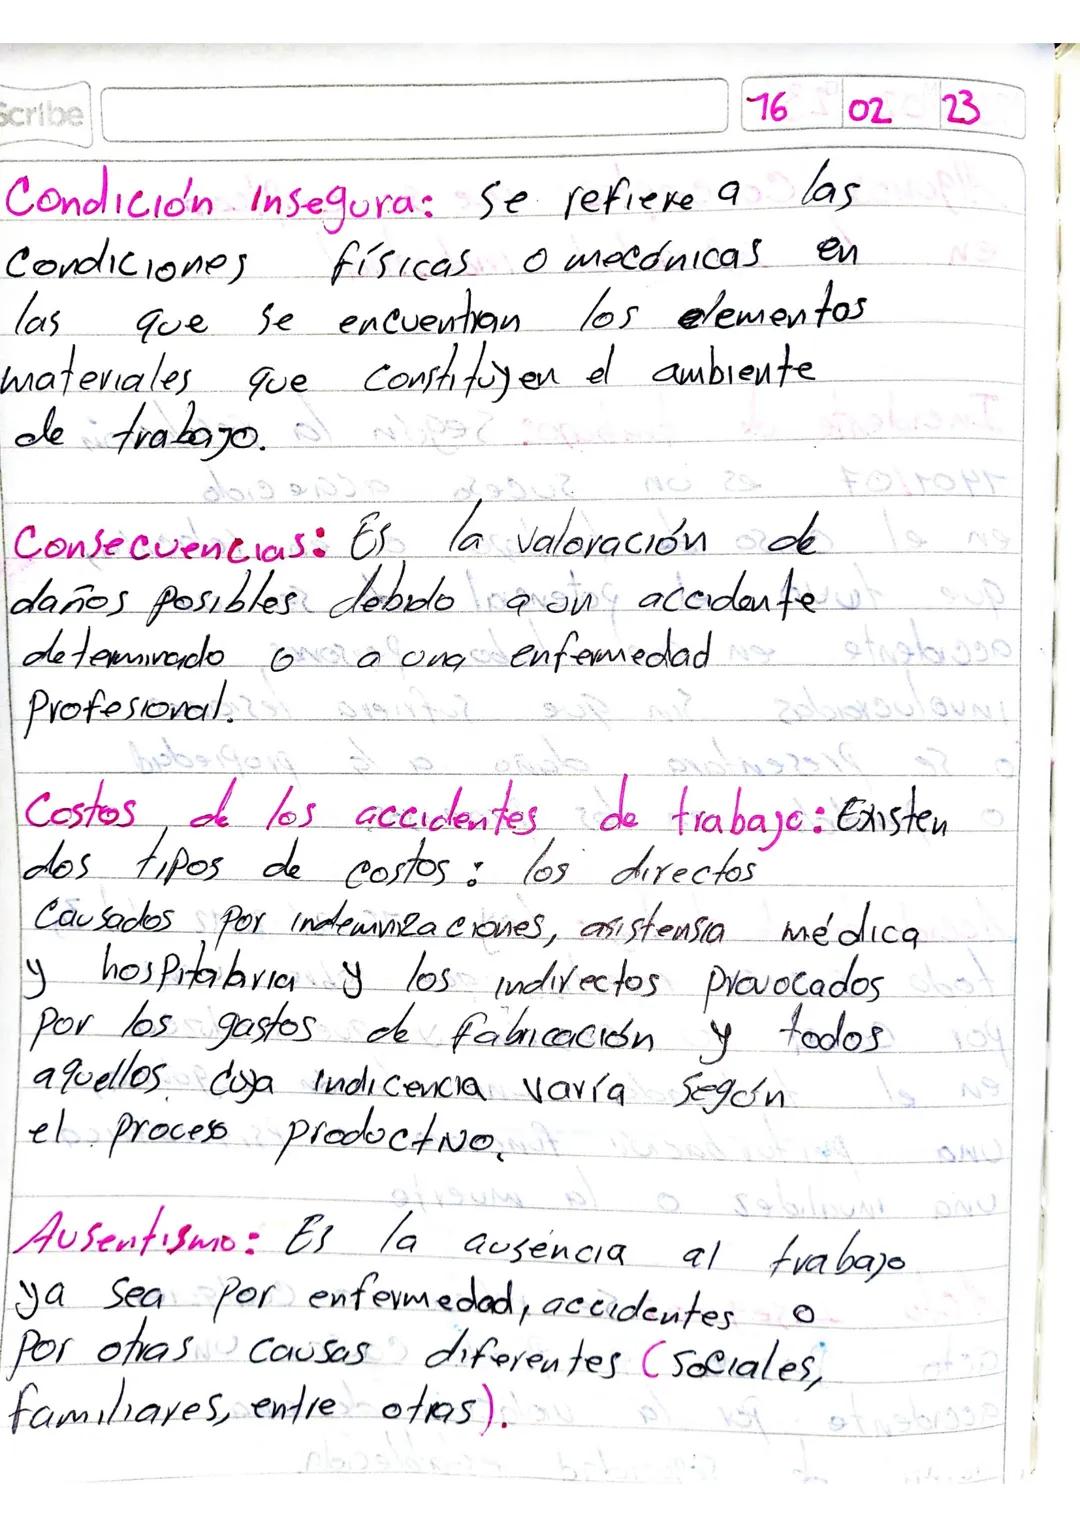 Scribe
16 02 23
Condición Insegura: Se refiere a las
Condiciones físicas o mecánicas en
las que se encuentran los elementos
materiales que constituyen el ambiente
de trabajo.
Consecuencias: Es la valoración de
daños posibles debido a un accidente
determinado o a una enfermedad
Profesional.
Costos de los accidentes de trabajo: Existen
dos tipos de costos: los directos
Causados por indemnizaciones, asistensia médica
y hospitalaria y los indirectos provocados
por los gastos de fabricación y todos
aquellos cuya indicencia varía según
el proceso productivo.
Ausentismo: Es la ausencia al trabajo
ya sea por enfermedad, accidentes o
Por otras causas diferentes (Sociales,
familiares, entre otras).